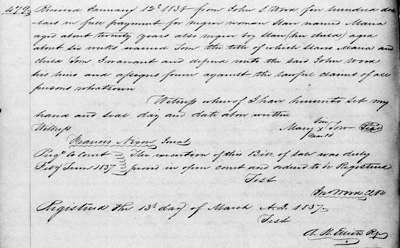 Received January 12th 1837 from John L Wood five hundred dol
lars in full payment for negro woman slave named Maria
aged about twenty years also negro boy slave (her child) aged
about six weeks named Tom the title of which slaves Maria and
child Tom I warrant and defend unto the said John Wood
his heirs and assigns from against the lawful claims of all
persons whatsoever
Witness whereof I have hereunto set my
hand and seal day and date above written
Witness
Mary X
Francis Nixon Jurat
Court The execution of this Bill of Sale was duly
Feby Term 1837 proven in open court and ordered to be Registered
Test
Jno Wood Clk
Registered the 13th day of March A.D. 1837
Test